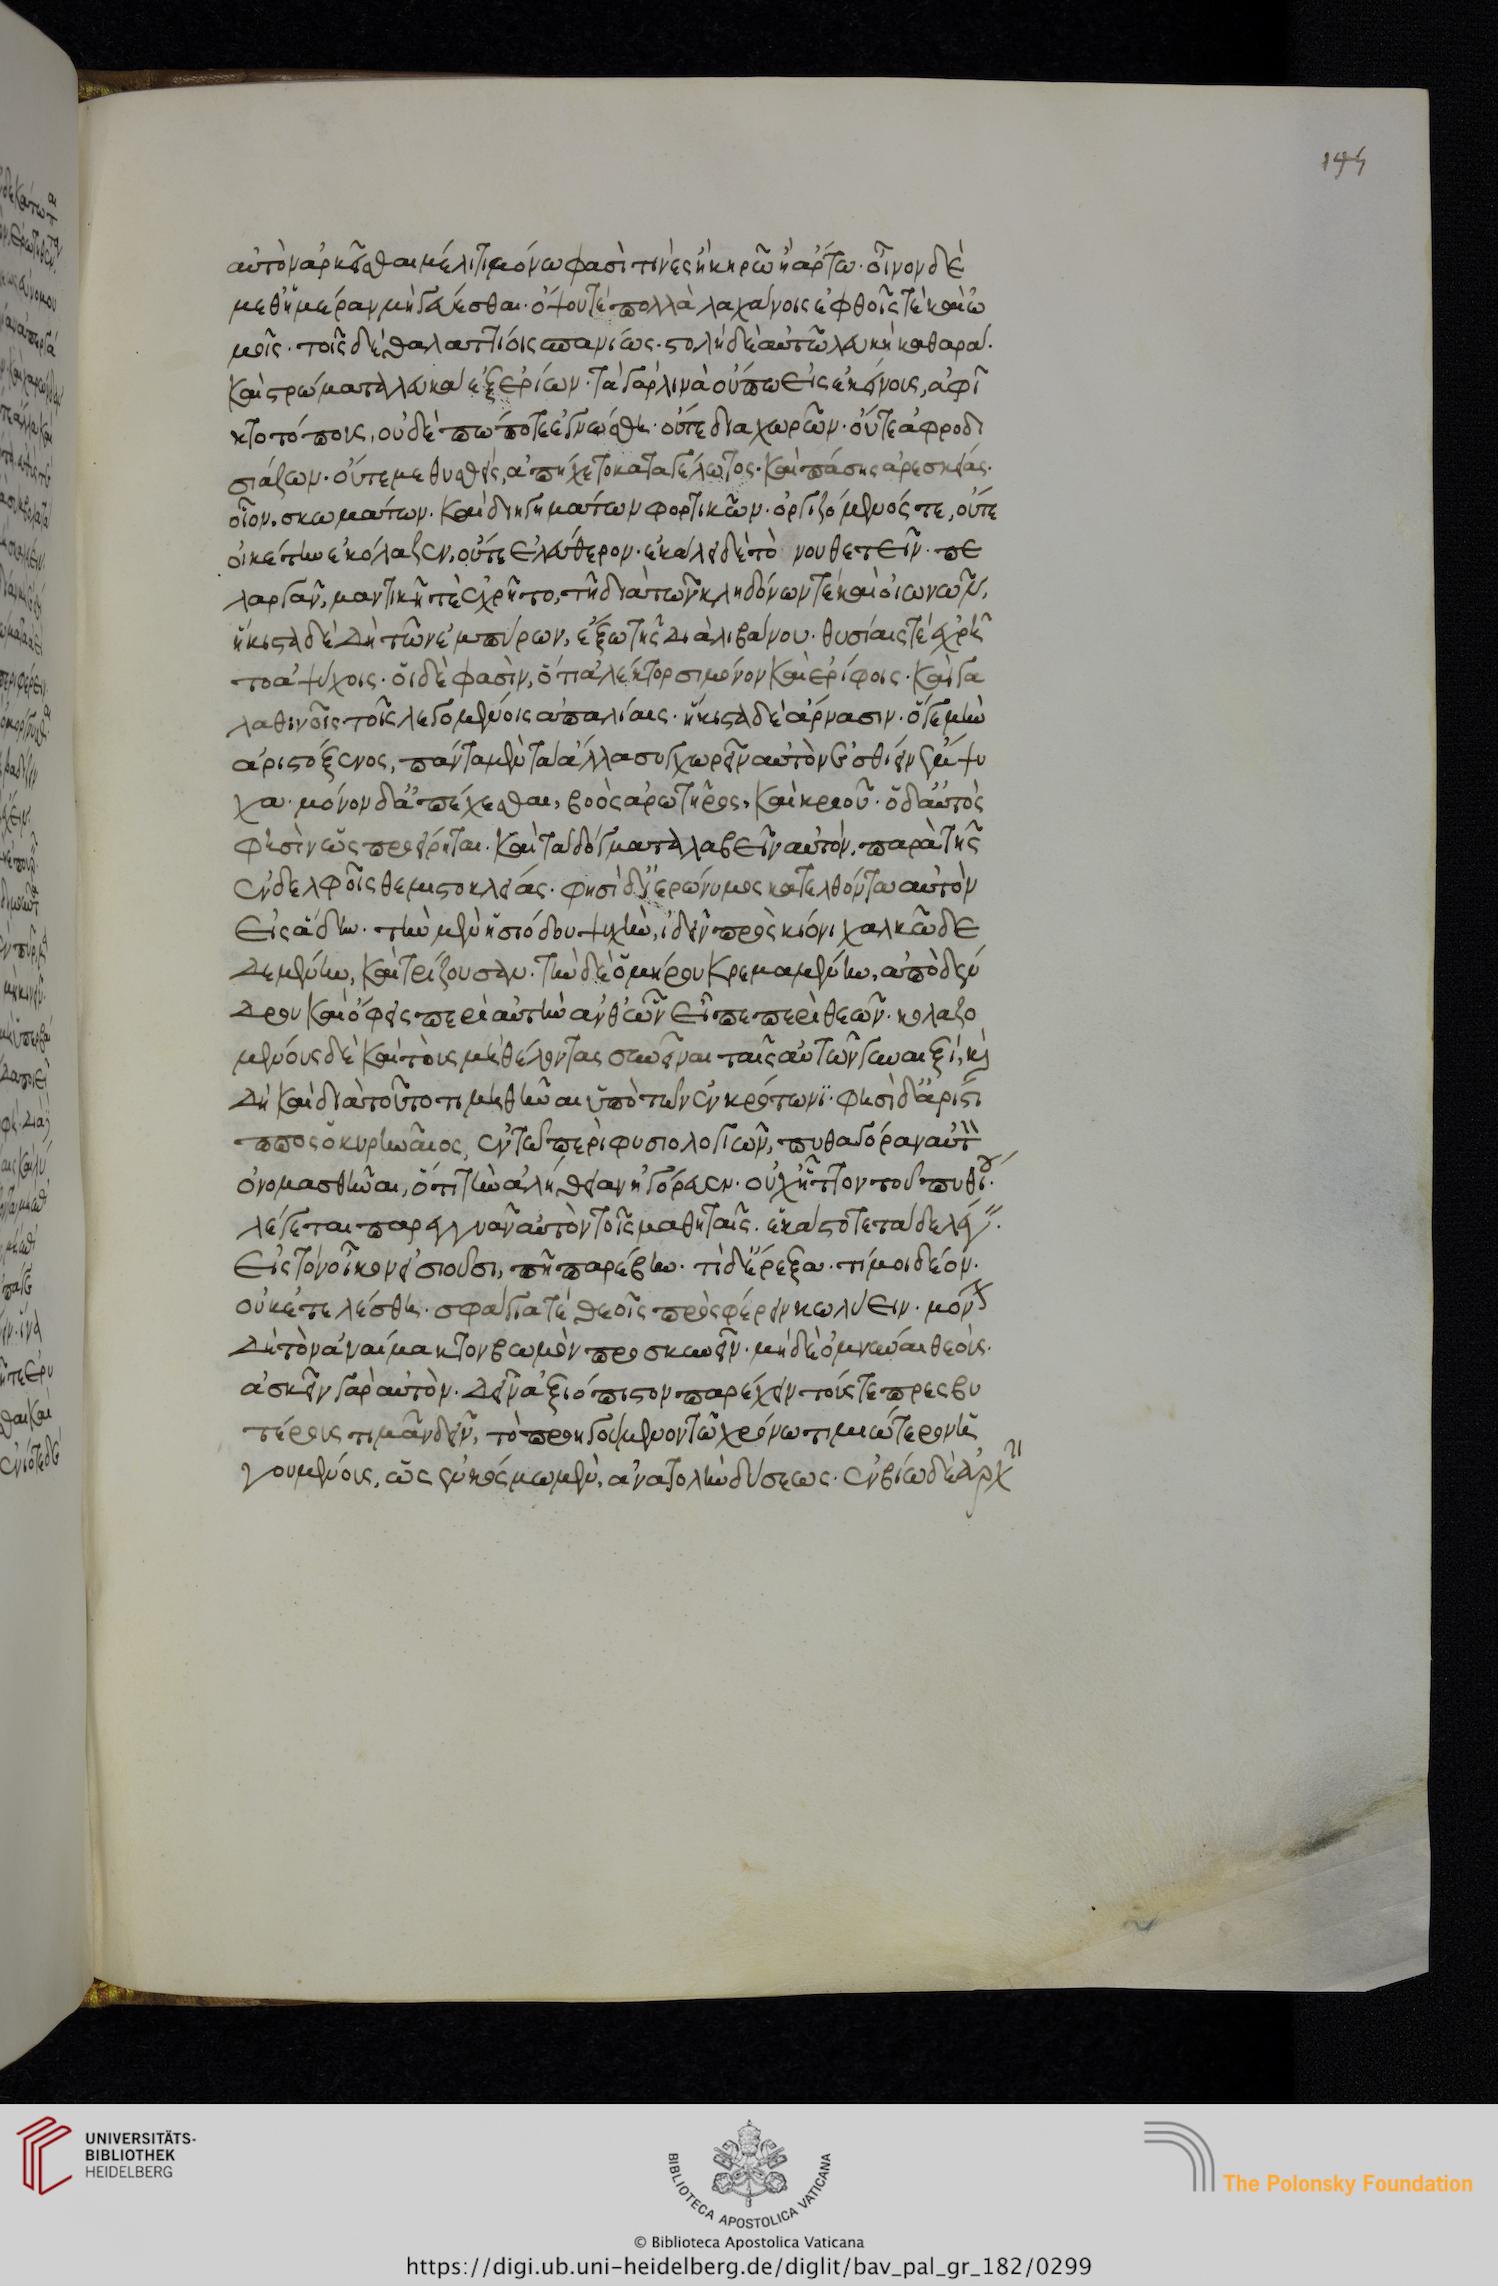 194
αὐτὸν ἀρκεῖσθαι μέλιτι μόνω φασί τινες ἢ κηρῶ ἢ ἄρτω· οἶνον δὲ
μεθ' ἡμέραν μὴ γεύεσθαι· ὄψου τὲ πολλὰ λαχάνοις ἐφθοῖς τὲ καὶ ὠ
μοῖς· τοῖς δὲ θαλαττίοις σπανίως· στολὴ δὲ αὐτῶ λευκὴ καθαρά·
καὶ στρώματα λευκὰ ἐξ ἐρίων· τὰ γὰρ λινὰ οὔπω εἰς ἐκείνοις, ἀφῖ
κτο τόποις, οὐδὲ πώποτε ἐγνώσθη· οὔτε διαχωρῶν· οὔτε ἀφροδι
σιάζων· οὔτε μεθυσθείς, ἀπήχετο καταγέλωτος· καὶ πάσης ἀρεσκείας·
οἷον, σκωμάτων· καὶ διηγημάτων φορτικῶν· ὀργιζόμενός τε, οὔτε
οἰκέτην ἐκόλαζεν, οὔτε ἐλεύθερον· ἐκάλει δὲ τὸ νουθετεῖν· πε
λαργᾶν, μαντικῆ τὲ ἐχρῆτο, τῆ διὰ τῶν κληδόνων τὲ καὶ οἰωνῶν,
ἥκιστα δὲ δὴ τῶν ἐμπύρων, ἔξω τῆς διὰ λιβάνου· θυσίαις τὲ ἐχρῆ
το ἀψύχοις· οἱ δὲ φασὶν, ὅτι ἀλέκτορσι μόνον καὶ ἐρίφοις· καὶ γα
λαθινοῖς τοῖς λεγομένοις ἁπαλίαις· ἥκιστα δὲ ἄρνασιν· ὅ γε μὴν
ἀριστόξενος, πάντα μὲν τὰ ἄλλα συγχωρεῖν αὐτὸν ἐσθίειν ἔμψυ
χα· μόνον δ' ἀπέχεσθαι, βοὸς ἀροτῆρος, καὶ κριοῦ· ὁ δ' αὐτὸς
φησὶν ὡς προείρηται· καὶ τὰ δόγματα λαβεῖν αὐτόν, παρὰ τῆς
ἐν δελφοῖς θεμιστοκλείας· φησὶ δ' ἱερώνυμος κατελθόντα αὐτὸν
εἰς ἅδην· τὴν μὲν ἡσιόδου ψυχὴν, ἰδεῖν πρὸς κίονι χαλκῶ δε
δεμένην, καὶ τρίζουσαν· τὴν δὲ ὁμήρου κρεμαμένην, ἀπὸ δέν
δρου καὶ ὄφεις περὶ αὐτὴν ἀνθ' ὧν εἶπε περὶ θεῶν· κολαζο
μένους δὲ καὶ τοὺς μὴ θέλοντας συνεῖναι ταῖς αὐτῶν γυναιξί, καὶ
δὴ καὶ διὰ τοῦτο τιμηθῆναι ὑπὸ τῶν ἐν κρότωνϊ· φησὶ δ' ἀρίστι
ππος ὁ κυρηναῖος, ἐν τῶ περὶ φυσιολογιῶν, πυθαγόραν αὐτὸν
ὀνομασθῆναι, ὅτι τὴν ἀλήθειαν ἠγόρευεν· οὐχ ἧττον τοῦ πυθίου·
λέγεται παρεγγυᾶν αὐτὸν τοῖς μαθηταῖς· ἑκάστοτε τάδε λέγειν·
εἰς τὸν οἶκον εἰσιοῦσι, πῆ παρέβην· τί δ' ἔρεξα· τί μοι δέον·
οὐκ ἐτελέσθη· σφάγιά τε θεοῖς προσφέρειν κωλύειν· μόνον
δὴ τὸν ἀναίμακτον βωμὸν προσκυνεῖν· μὴ δὲ ὀμνύναι θεούς·
ἀσκεῖν γὰρ αὐτὸν· δεῖν ἀξιόπιστον παρέχειν τούς τε πρεσβυ
τέρους τιμᾶν δεῖν, τὸ προηγούμενον τῶ χρόνω τιμιώτερον ἡ
γουμένοις, ὡς ἐν κόσμω μὲν, ἀνατολὴν δύσεως· ἐν βίω δὲ ἀρχὴν
UNIVERSITÄTS-
BIBLIOTHEK
HEIDELBERG
BIBLIOTECA APOSTOLICA VATICANA
The Polonsky Foundation
© Biblioteca Apostolica Vaticana
https://digi.ub.uni-heidelberg.de/diglit/bav_pal_gr_182/0299